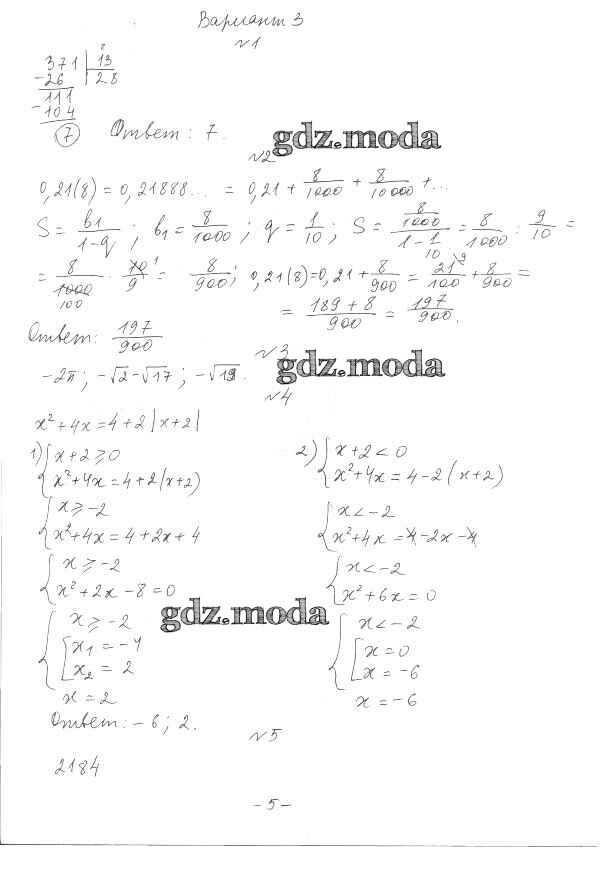 Вариант 3
№1
371 | 13
- 26 | 28
111
- 104
7
Ответ: 7.
gdz.moda
№2
0,21(8) = 0,21888... = 0,21 + 8/1000 + 8/10000 + ...
S = b1/(1-q); b1 = 8/1000; q = 1/10; S = (8/1000)/(1 - 1/10) = 8/1000 : 9/10 =
= 8/1000 · 10/9 = 8/900; 0,21(8) = 0,21 + 8/900 = 21/100 + 8/900 =
= (189 + 8)/900 = 197/900.
Ответ: 197/900
№3
-2π; -√2 - √17; -√19.
gdz.moda
№4
x² + 4x = 4 + 2|x+2|
1) { x + 2 ≥ 0
x² + 4x = 4 + 2(x+2)
{ x ≥ -2
x² + 4x = 4 + 2x + 4
{ x ≥ -2
x² + 2x - 8 = 0
{ x ≥ -2
[ x₁ = -4
x₂ = 2
x = 2
2) { x + 2 < 0
x² + 4x = 4 - 2(x+2)
{ x < -2
x² + 4x = 4 - 2x - 4
{ x < -2
x² + 6x = 0
{ x < -2
[ x = 0
x = -6
x = -6
gdz.moda
Ответ: -6; 2.
№5
2184
-5-